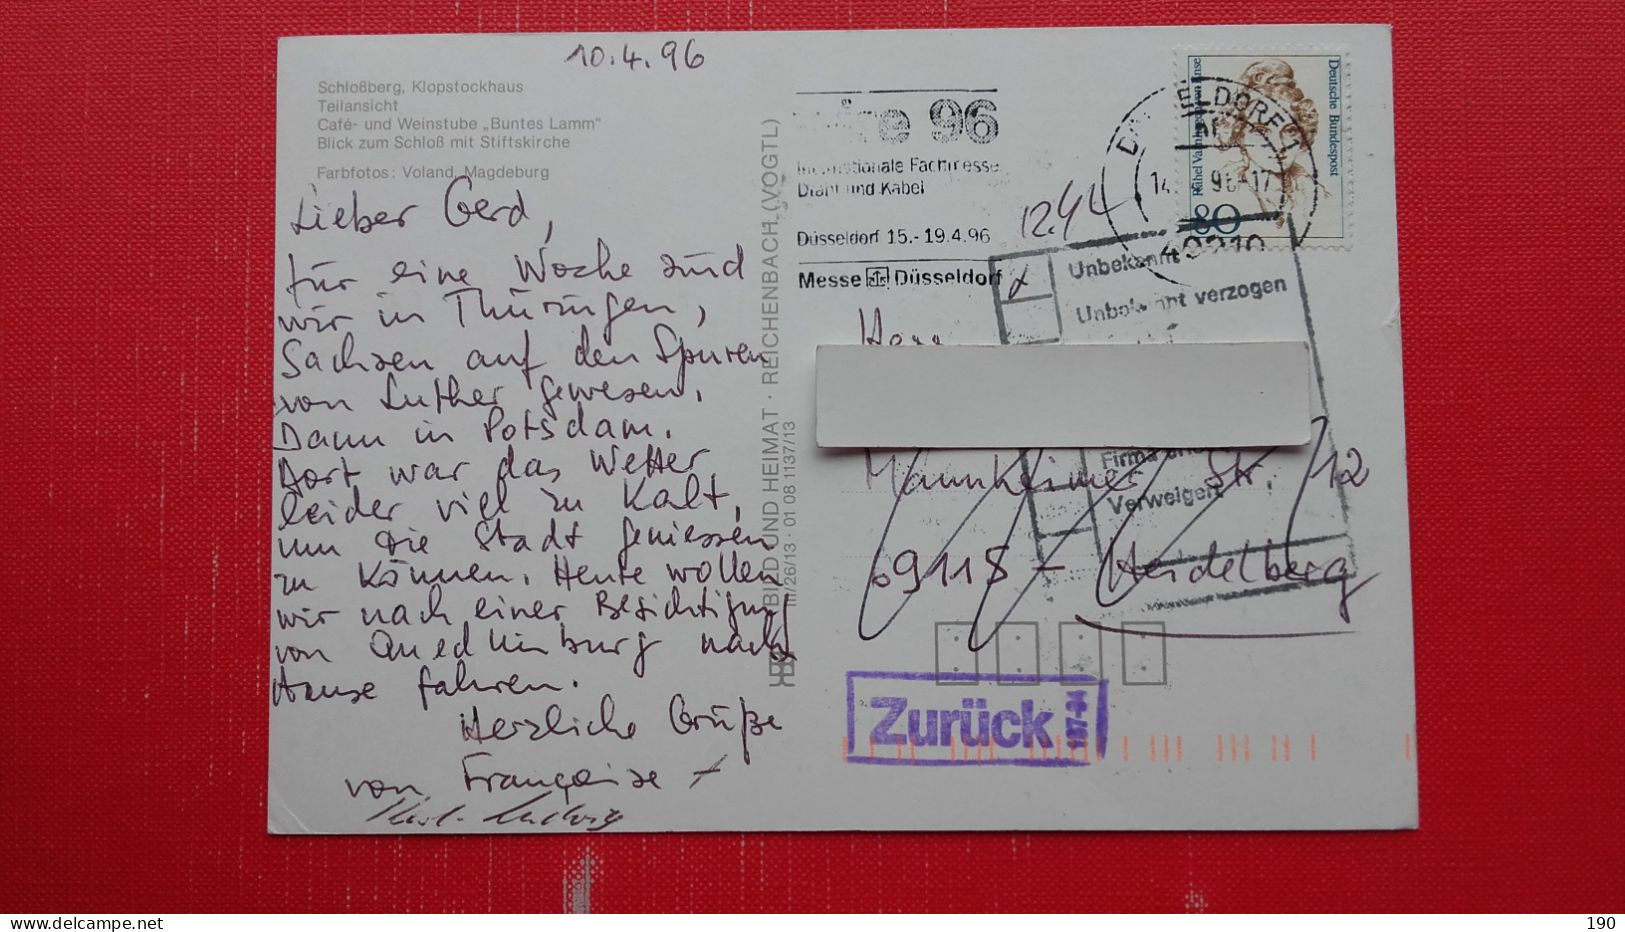 10.4.96
Schloßberg, Klopstockhaus
Teilansicht
Café- und Weinstube „Buntes Lamm“
Blick zum Schloß mit Stiftskirche
Farbfotos: Voland, Magdeburg
Lieber Gerd,
für eine Woche sind
wir in Thüringen,
Sachsen auf den Spuren
von Luther gewesen.
Dann in Potsdam.
Dort war das Wetter
leider viel zu kalt,
um die Stadt geniessen
zu können. Heute wollen
wir nach einer Besichtigung
von Quedlinburg nach
Hause fahren.
Herzliche Grüße
von Françoise +
Karl-Ludwig
BILD UND HEIMAT · REICHENBACH (VOGTL)
III/26/13 · 01 08 1137/13
96
Internationale Fachmesse
Draht und Kabel
Düsseldorf 15.-19.4.96
Messe Düsseldorf
Deutsche Bundespost
80
Unbekannt
Unbekannt verzogen
Firma
Verweigert
Herr
Mannheimer Str. 112
69115 - Heidelberg
Zurück
190